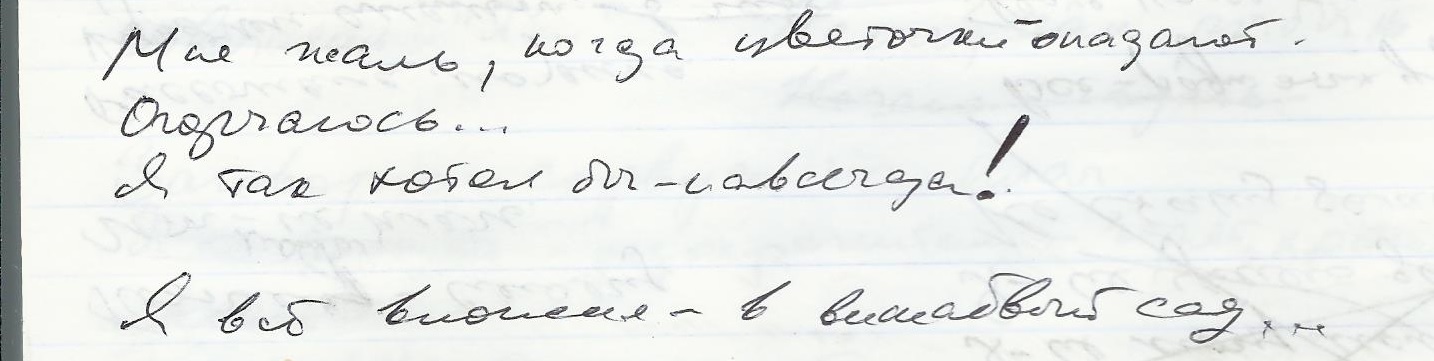 Мне жаль, когда цветочки опадают.
Огорчаюсь...
Я так хотел бы – навсегда!
Я всё – в вишнёвый сад...